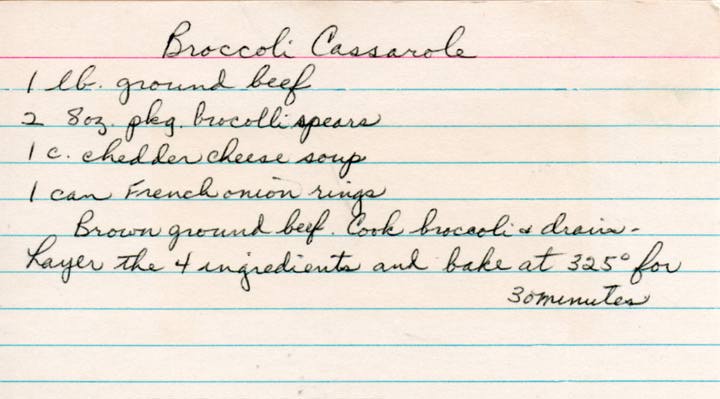 Broccoli Cassarole
1 lb. ground beef
2 8oz. pkg. brocolli spears
1 c. chedder cheese soup
1 can French onion rings
Brown ground beef. Cook broccoli & drain -
Layer the 4 ingredients and bake at 325° for
30 minutes